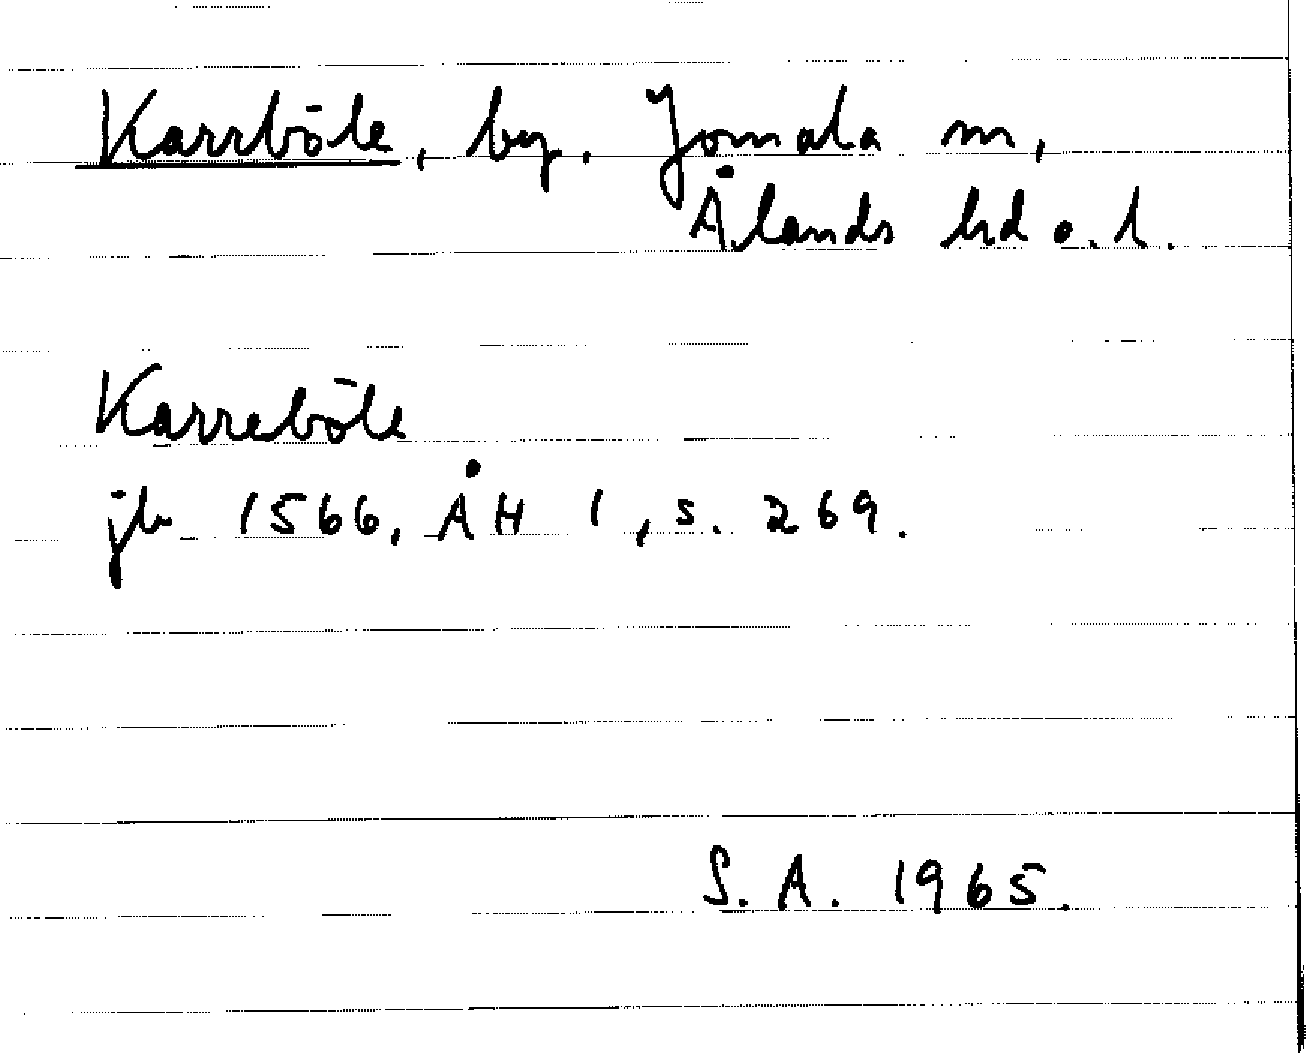 Karrböle, by. Jomala m,
Ålands hd o. l.
Karreböle
jb 1566, ÅH 1, s. 269.
S. A. 1965.